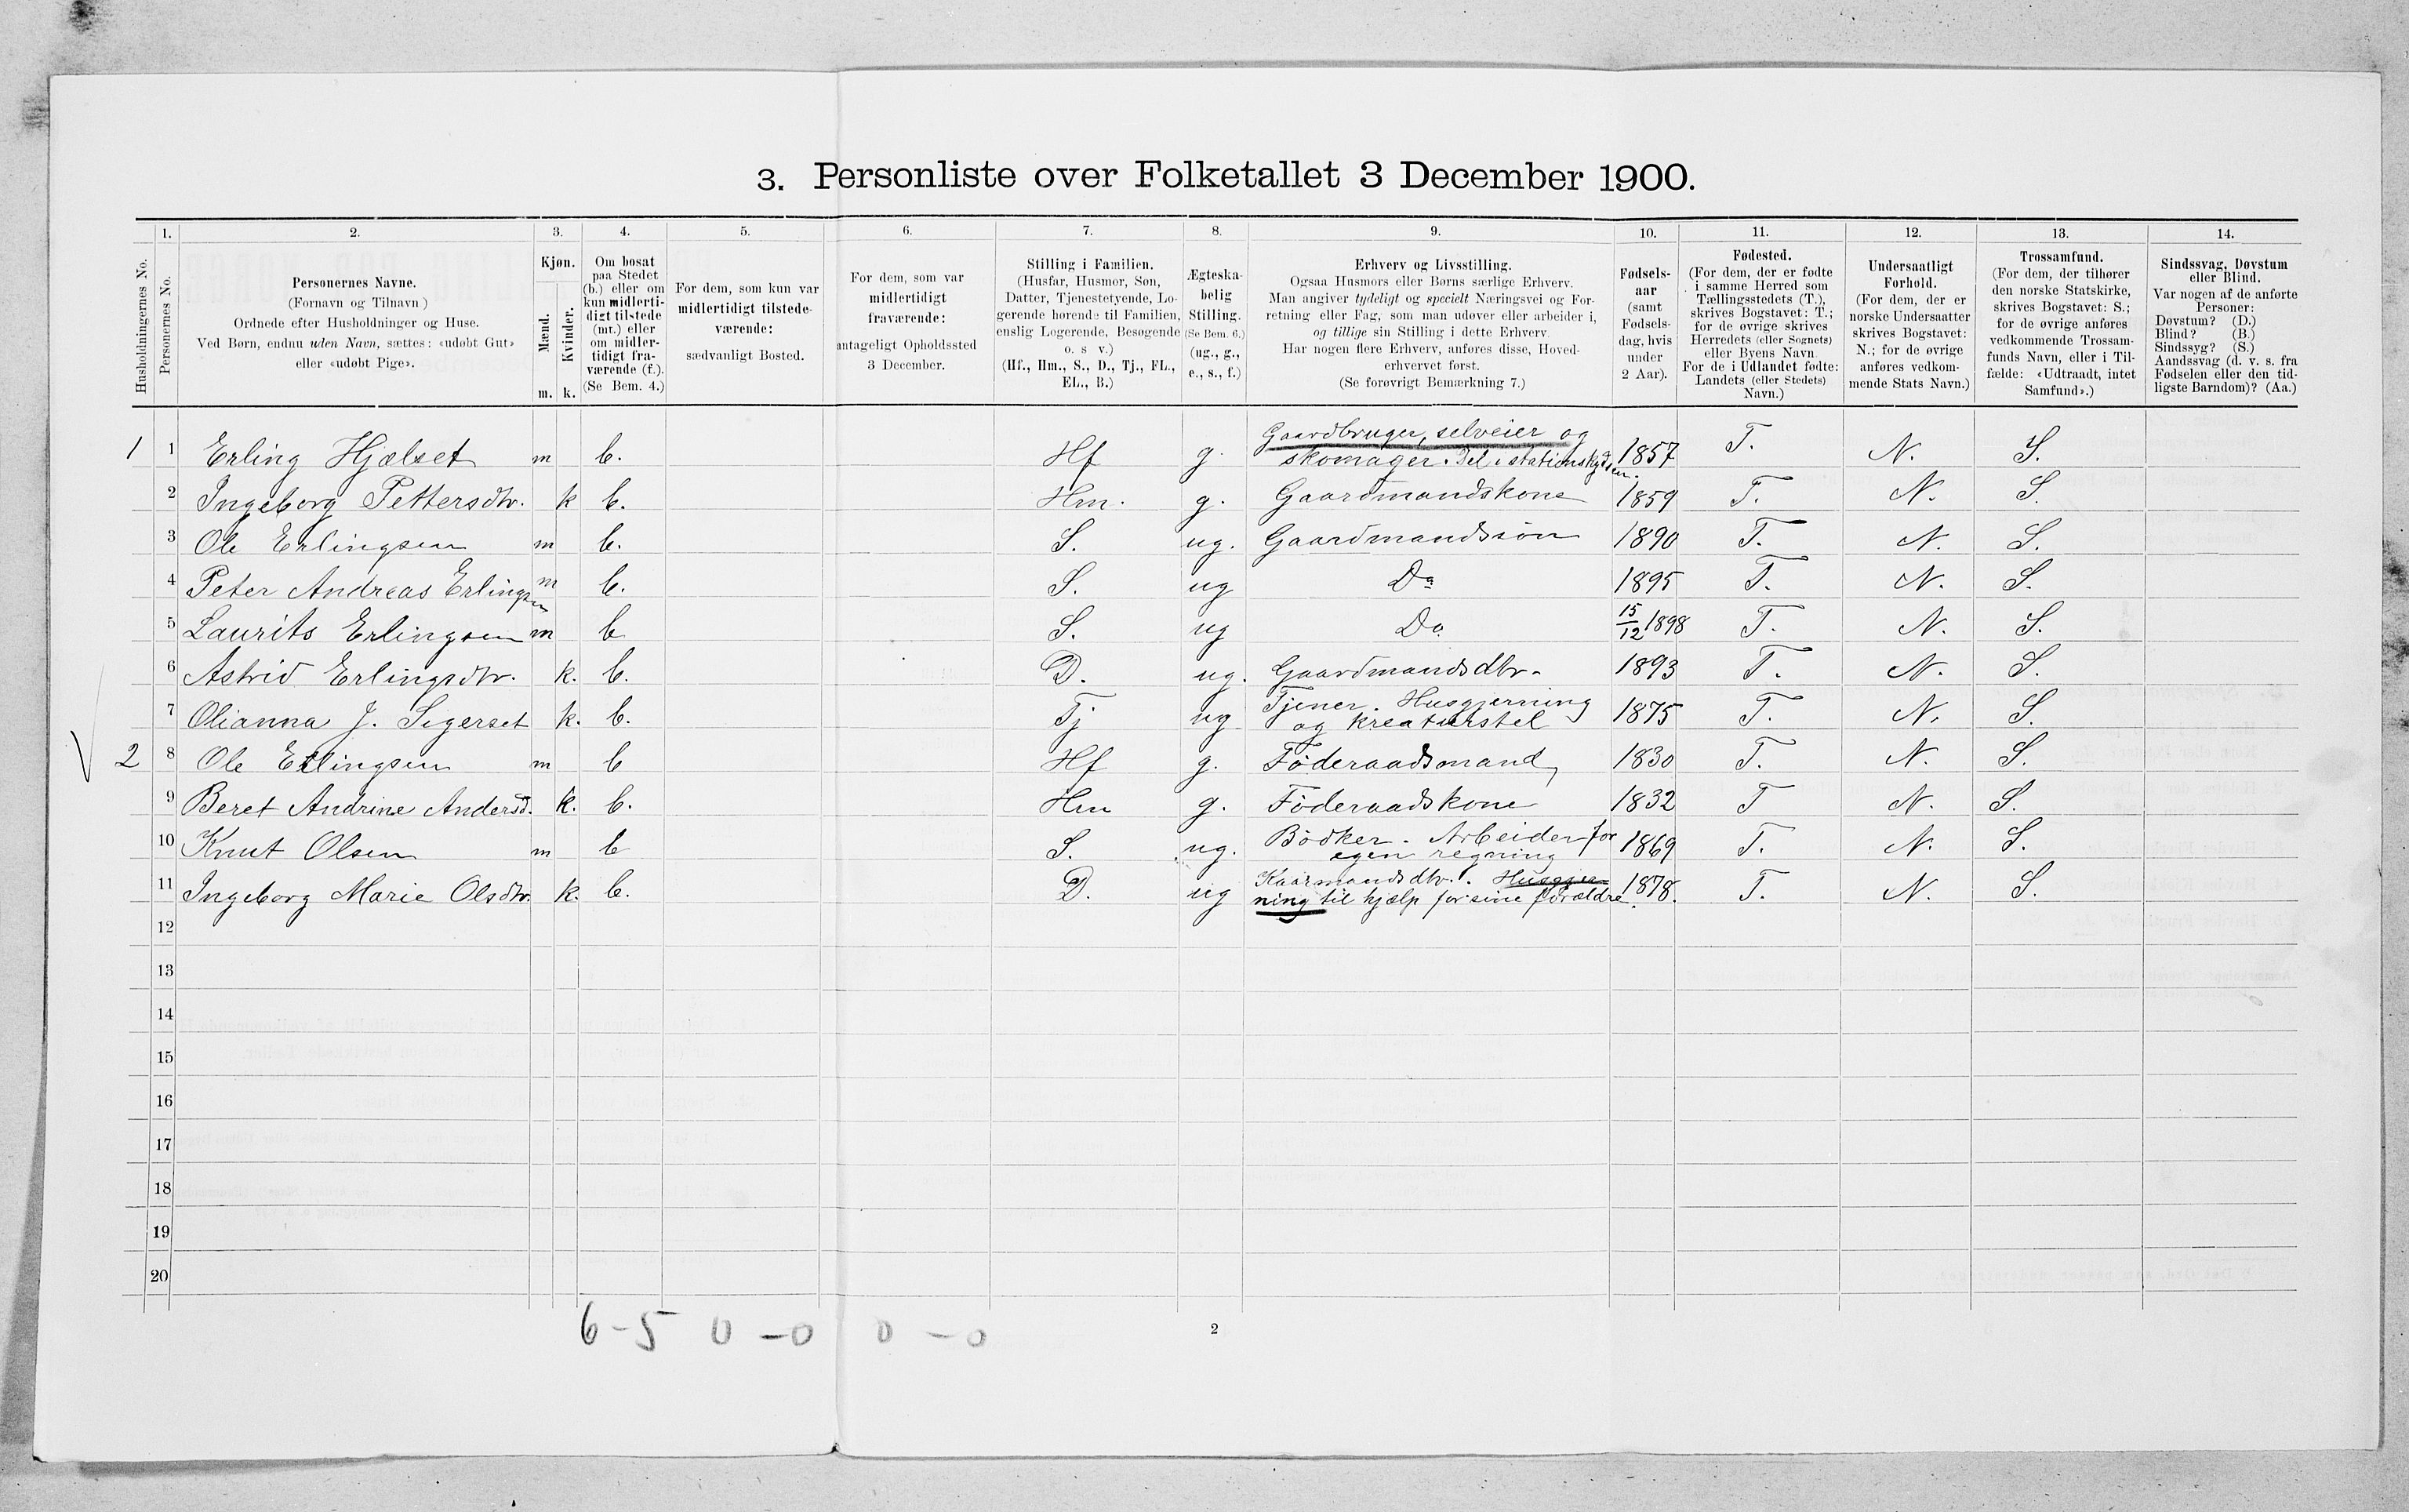 3. Personliste over Folketallet 3 December 1900.
1. 2. 3. 4. 5. 6. 7. 8. 9. 10. 11. 12. 13. 14.
Husholdningernes No.
Personernes No.
Personernes Navne.
(Fornavn og Tilnavn)
Ordnede efter Husholdninger og Huse.
Ved Børn, endnu uden Navn, sættes: «udøbt Gut»
eller «udøbt Pige».
Kjøn.
Mænd.
Kvinder.
m. k.
Om bosat
paa Stedet
(b.) eller om
kun midlerti-
digt tilstede
(mt.) eller
om midler-
tidigt fra-
værende (f.).
(Se Bem. 4.)
For dem, som kun var
midlertidigt tilstede-
værende:
sædvanligt Bosted.
For dem, som var
midlertidigt
fraværende:
antageligt Opholdssted
3 December.
Stilling i Familien.
(Husfar, Husmor, Søn,
Datter, Tjenestetyende, Lo-
gerende hørende til Familien,
enslig Logerende, Besøgende
o. s. v.)
(Hf., Hm., S., D., Tj., FL.,
EL., B.)
Ægteska-
belig
Stilling.
(Se Bem. 6.)
(ug., g.,
e., s., f.)
Erhverv og Livsstilling.
Ogsaa Husmors eller Børns særlige Erhverv.
Man angiver tydeligt og specielt Næringsvei og For-
retning eller Fag, som man udøver eller arbeider i,
og tillige sin Stilling i dette Erhverv.
Har nogen flere Erhverv, anføres disse, Hoved-
erhvervet først.
(Se forøvrigt Bemærkning 7.)
Fødsels-
aar
(samt
Fødsels-
dag, hvis
under
2 Aar).
Fødested.
(For dem, der er fødte
i samme Herred som
Tællingsstedets (T.),
skrives Bogstavet: T.;
for de øvrige skrives
Herredets (eller Sognets)
eller Byens Navn.
For de i Udlandet fødte:
Landets (eller Stedets)
Navn.)
Undersaatligt
Forhold.
(For dem, der er
norske Undersaatter
skrives Bogstavet:
N.; for de øvrige
anføres vedkom-
mende Stats Navn.)
Trossamfund.
(For dem, der tilhører
den norske Statskirke,
skrives Bogstavet: S.;
for de øvrige anføres
vedkommende Trossam-
funds Navn, eller i Til-
fælde: «Udtraadt, intet
Samfund».)
Sindssvag, Døvstum
eller Blind.
Var nogen af de anførte
Personer:
Døvstum? (D.)
Blind? (B.)
Sindssyg? (S.)
Aandssvag (d. v. s. fra
Fødselen eller den tid-
ligste Barndom)? (Aa.)
1 1 Erling Hjælset m b. Hf g. Gaardbruger, selveier og
skomager. Del i stationskydsen. 1857 T. N. S.
2 Ingeborg Pettersdtr. k b. Hm. g. Gaardmandskone 1859 T. N. S.
3 Ole Erlingsen m b. S. ug. Gaardmandssøn 1890 T. N. S.
4 Peter Andreas Erlingsen m b. S. ug Do 1895 T. N. S.
5 Laurits Erlingsen m b S. ug Do 15/12 1898 T. N. S.
6 Astrid Erlingsdtr. k. b. D. ug. Gaardmandsdtr. 1893 T. N. S.
7 Olianna J. Sigerset k. b. Tj ug Tjener. Husgjerning
og kreaturstel 1875 T. N. S.
2 8 Ole Erlingsen m b Hf g. Føderaadsmand, 1830 T. N. S.
9 Beret Andrine Andersd. k. b. Hm g. Føderaadskone 1832 T N. S.
10 Knut Olsen m b S. ug. Bødker. Arbeider for
egen regning 1869 T. N. S.
11 Ingeborg Marie Olsdtr. k. b. D. ug Kaarmandsdtr. Husgjer
ning til hjælp for sine forældre. 1878. T. N. S.
12
13
14
15
16
17
18
19
20
6 - 5 0 - 0 0 - 0
2